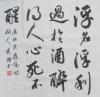 浮名浮利
過於酒醉
得人心死不
醒